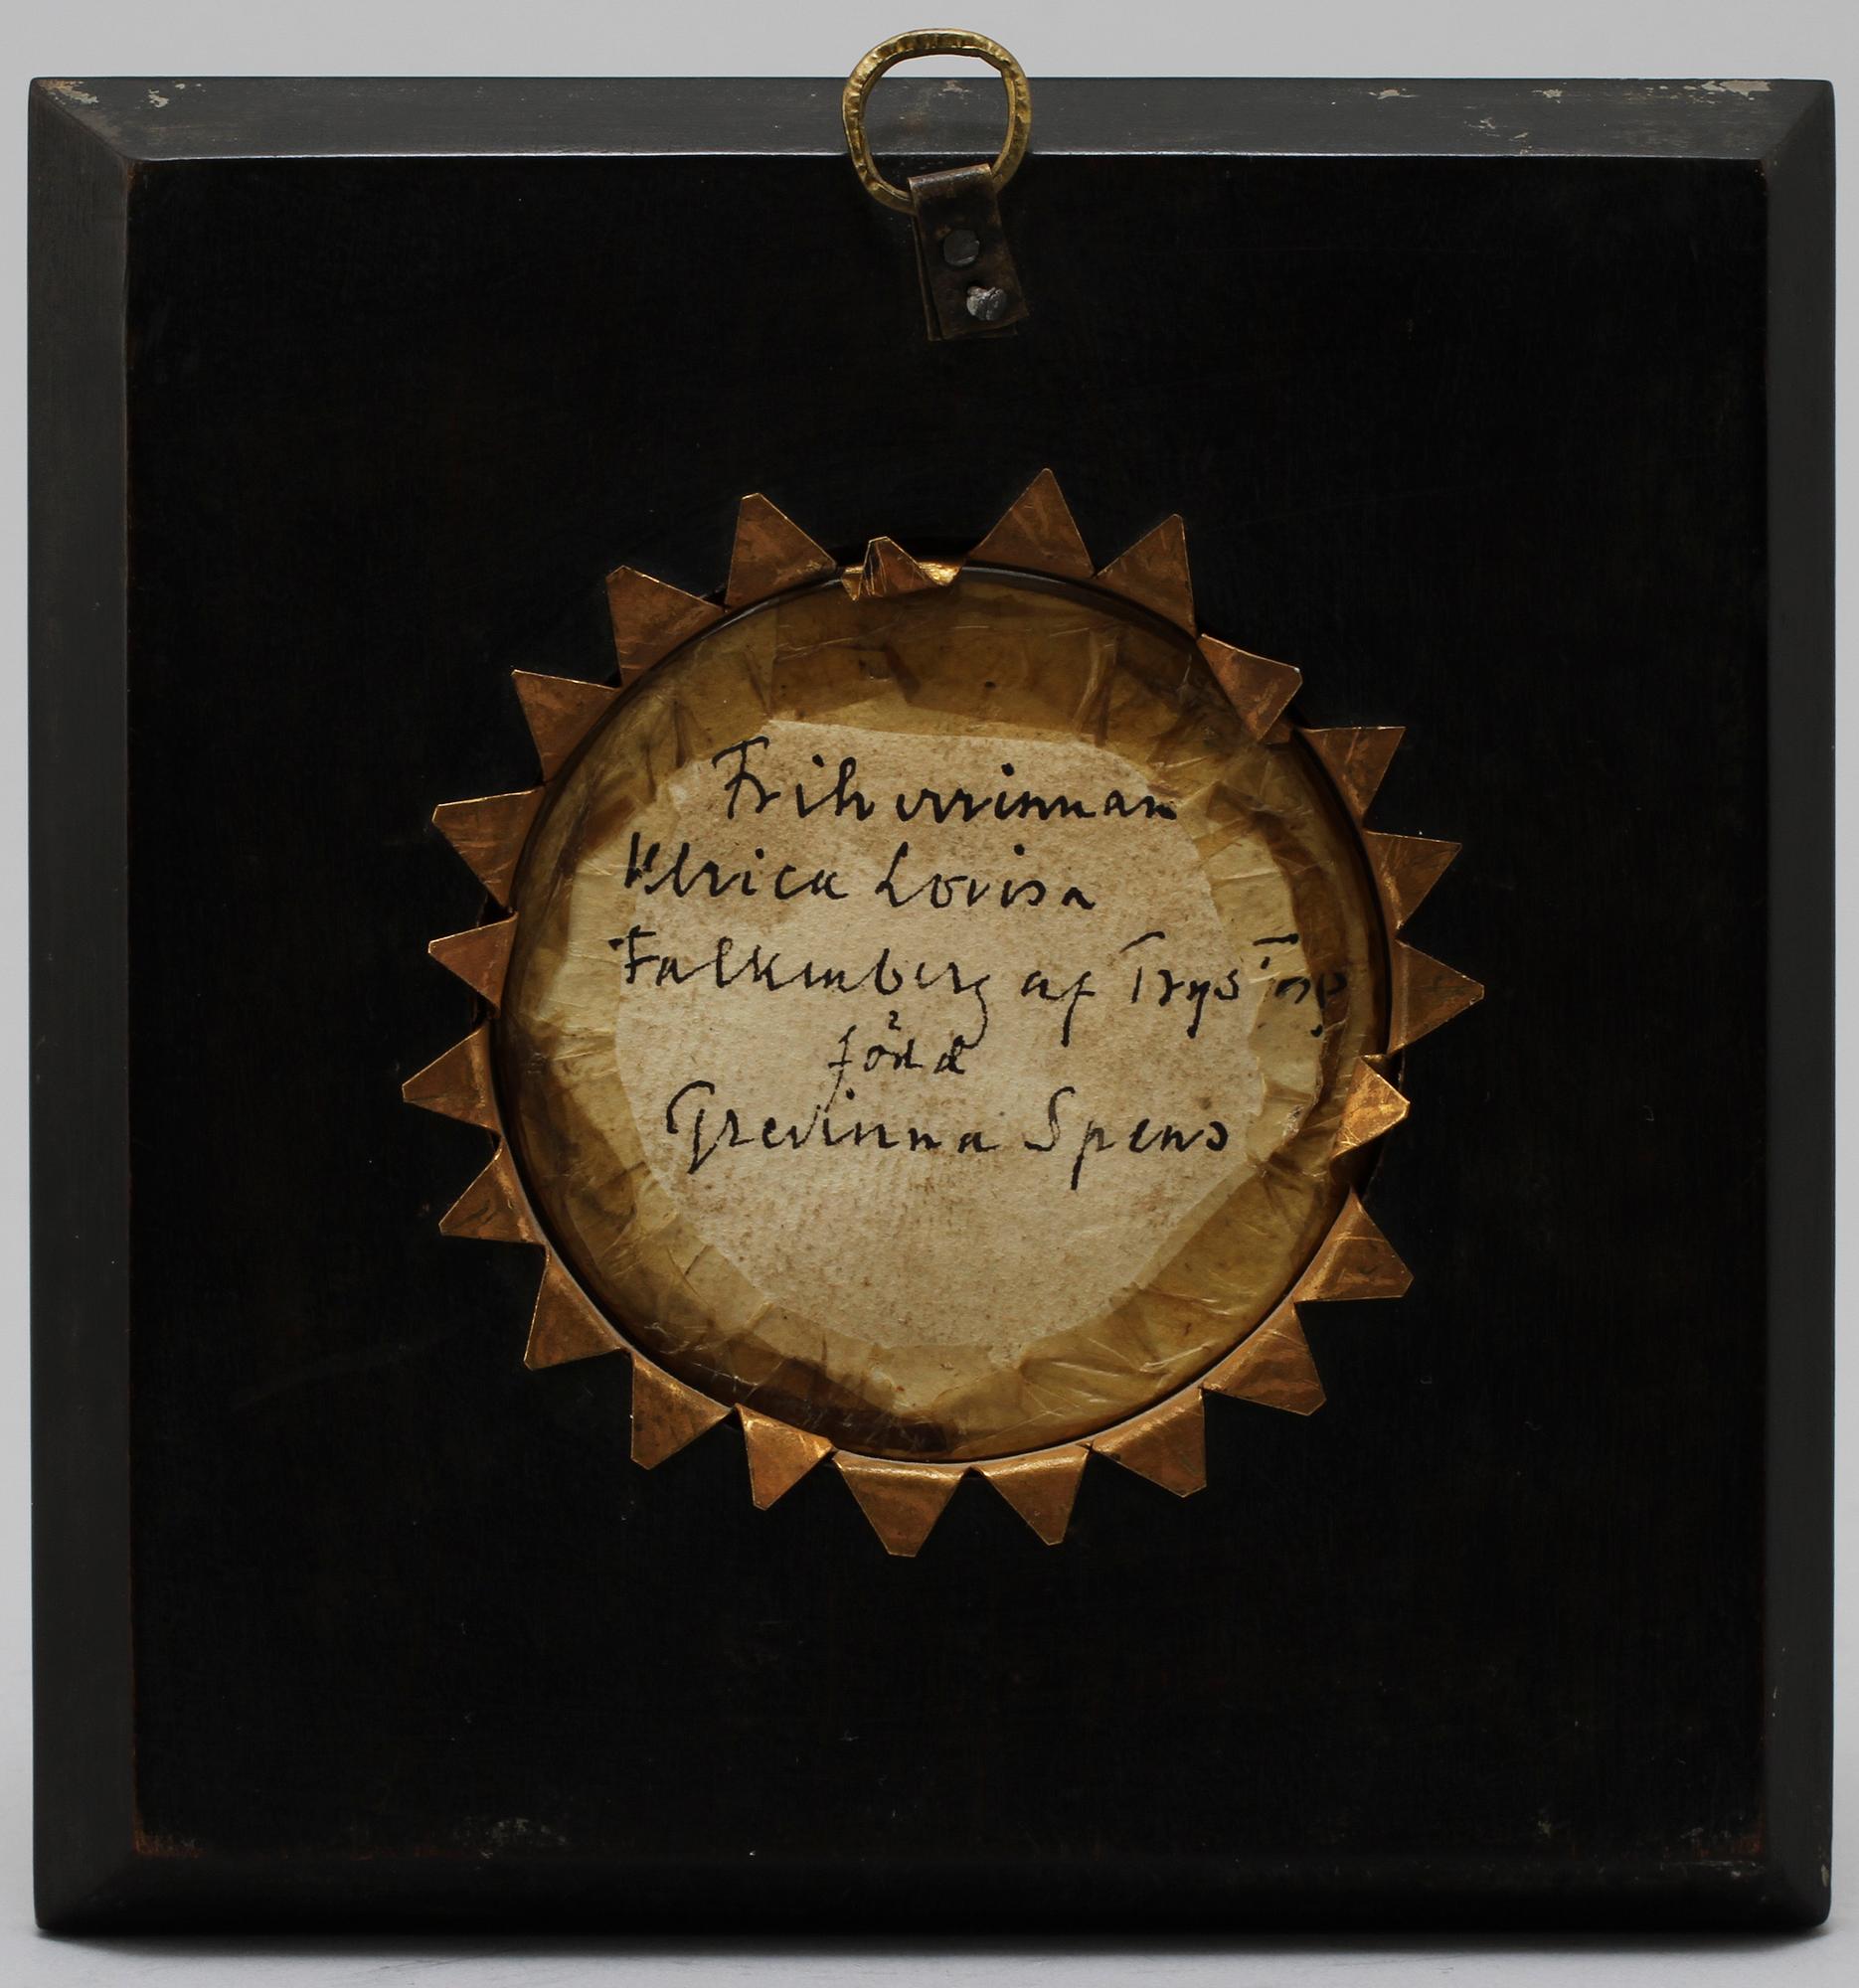 Friherrinnan
Ulrica Lovisa
Falkenberg af Trystorp
född
Grevinna Spens